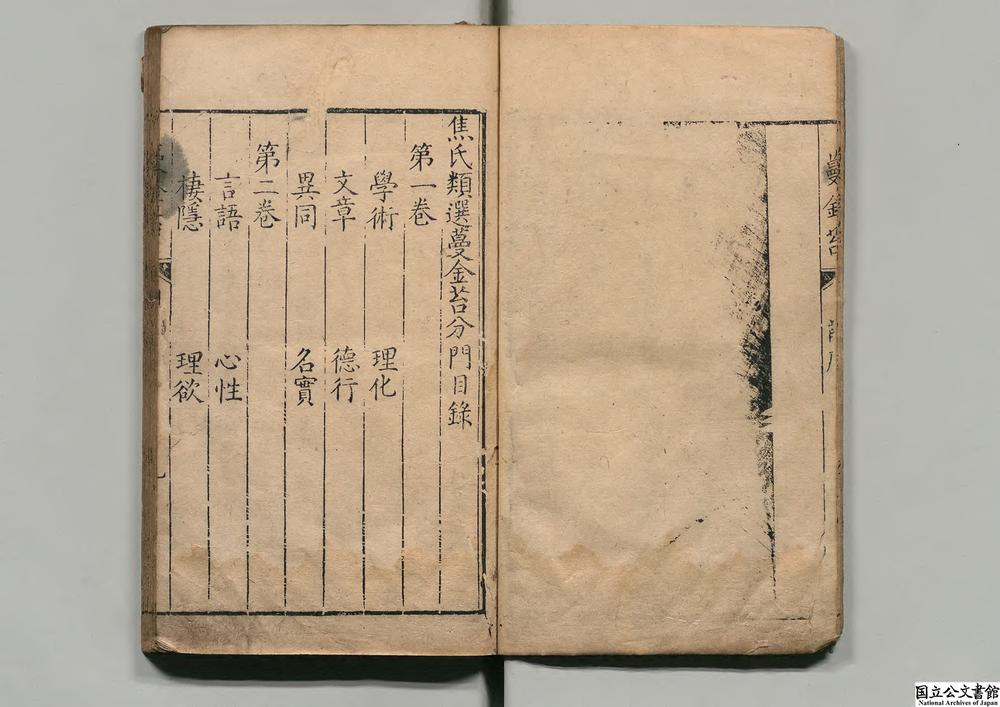 焦氏類選蔓金苔分門目錄
第一卷
學術 理化
文章 德行
異同 名實
第二卷
言語 心性
棲隱 理欲
国立公文書館
National Archives of Japan